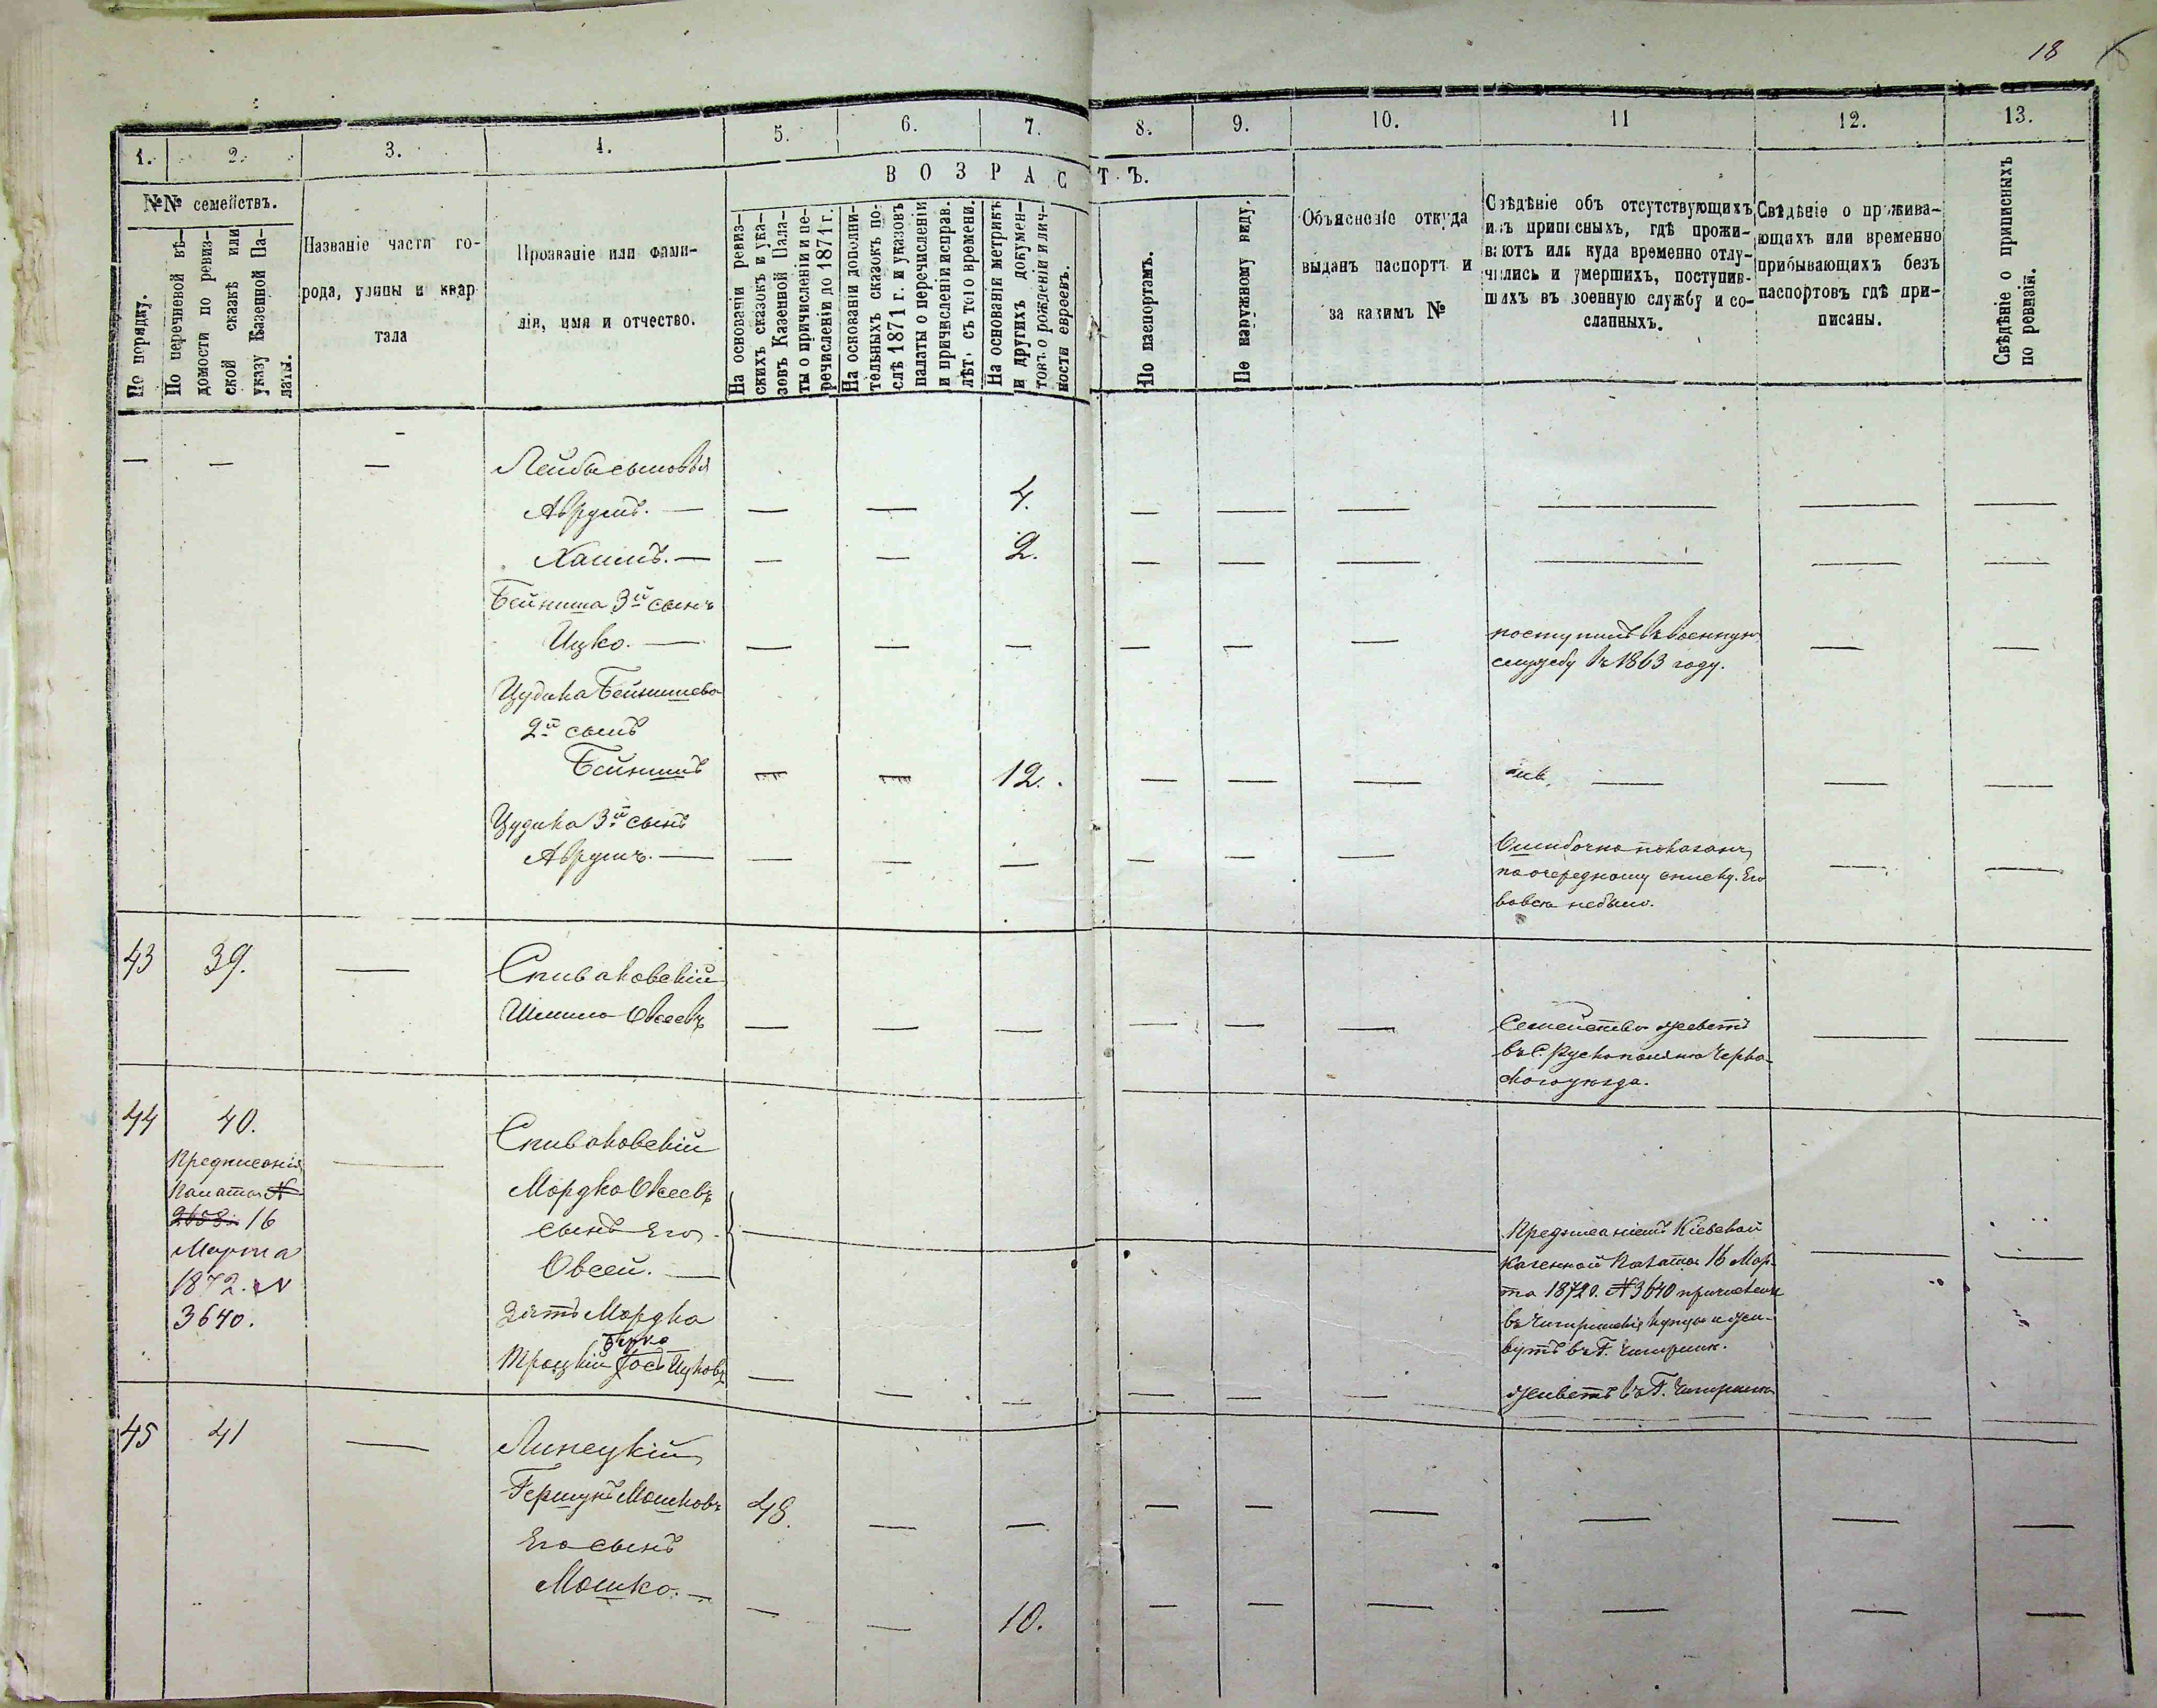 18
1. 2. 3. 4. 5. 6. 7. 8. 9. 10. 11 12. 13.
№№ семействъ.
По порядку.
По перечневой вѣ-
домости по ревиз-
ской сказкѣ или
указу Казенной Па-
латы.
Названіе части го-
рода, улицы и квар
тала
Прозваніе или фами-
лія, имя и отчество.
ВОЗРАСТЪ.
На основаніи ревиз-
скихъ сказокъ и ука-
зовъ Казенной Пала-
ты о причисленіи и пе-
речисленіи до 1871 г.
На основаніи дополни-
тельныхъ сказокъ по-
слѣ 1871 г. и указовъ
палаты о перечисленіи
и причисленіи исправ.
лѣтъ съ того времени.
На основаніи метрикъ
и другихъ докумен-
товъ о рожденіи и лич-
ности евреевъ.
По паспортамъ.
По наружному виду.
Объясненіе откуда
выданъ паспортъ и
за какимъ №
Свѣдѣніе объ отсутствующихъ
изъ приписныхъ, гдѣ прожи-
ваютъ или куда временно отлу-
чились и умершихъ, поступив-
шихъ въ военную службу и со-
сланныхъ.
Свѣдѣніе о прожива-
ющихъ или временно
прибывающихъ безъ
паспортовъ гдѣ при-
писаны.
Свѣдѣніе о приписныхъ
по ревизіи.
Лейбы сыновья
Аврумъ. — — — 4. — — — — — —
Хаимъ. — — — 2. — — — — — —
Бейниша 3й сынъ
Ицко. — — — — — — — поступилъ въ военную — —
службу въ 1863 году.
Цудика Бейнишева
2й сынъ
Бейнишъ — — 12. — — — — — —
Цудика 3й сынъ
Аврумъ. — — — — — — — Ошибочно показанъ — —
по очередному списку. Его
вовсе не было.
43 39. — Спиваковскій
Шмило Овсеевъ — — — — — — Семейство живетъ — —
въ С. Рускополяно Черка-
скаго уѣзда.
44 40. Спиваковскій
Предписанія
Палаты №
2658. 16
Марта
1872. №
3640.
Мордко Овсеевъ
сынъ Его
Овсей. —
Предписаніемъ Кіевской
Казенной Палаты 16 Мар-
та 1872 г. № 3640 причислены
въ Чигиринскіе купцы и жи-
вутъ въ Г. Чигирин.
зять Мордка
Берко
Троцкій Іось Ицковъ — — — — — — живетъ въ Г. Чигирина
45 41 — Липецкій
Гершунъ Мошковъ 48. — — — — — — — —
Его сынъ
Мошко. — — — 10. — — — — — —